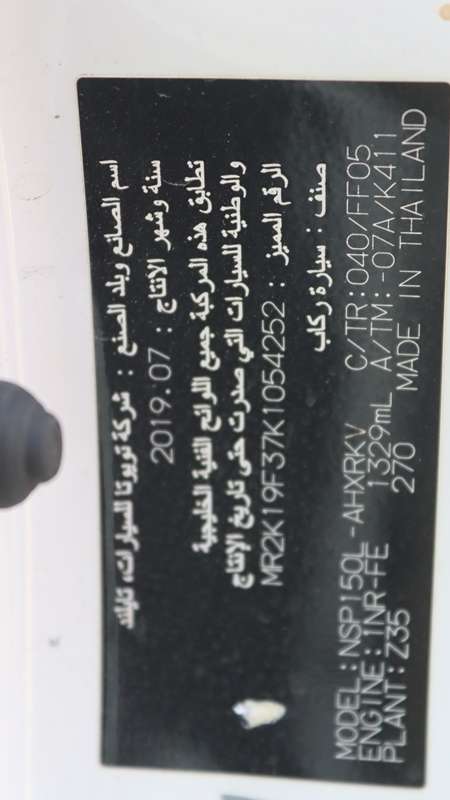 اسم الصانع وبلد الصنع : شركة تويوتا للسيارات، تايلند
سنة وشهر الانتاج : 2019.07
تطابق هذه المركبة جميع اللوائح الفنية الخليجية
والوطنية للسيارات التي صدرت حتى تاريخ الإنتاج
الرقم المميز : MR2K19F37K1054252
صنف : سيارة ركاب
MODEL:NSP150L-AHXRKV C/TR:040/FF05
ENGINE:1NR-FE 1329mL A/TM:-07A/K411
PLANT:Z35 270 MADE IN THAILAND